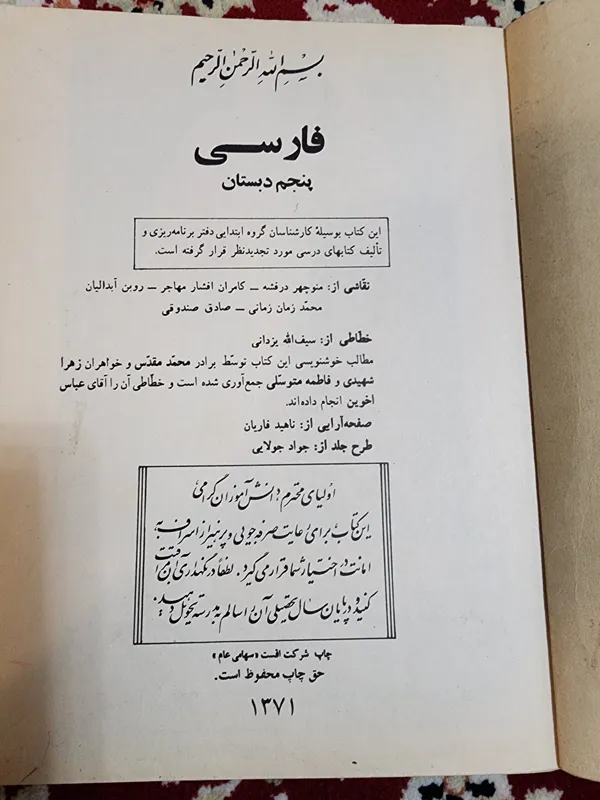 بسم الله الرّحمن الرّحیم
فارسی
پنجم دبستان
این کتاب بوسیلهٔ کارشناسان گروه ابتدایی دفتر برنامه‌ریزی و
تألیف کتابهای درسی مورد تجدیدنظر قرار گرفته است.
نقّاشی از: منوچهر درفشه ــ کامران افشار مهاجر ــ روبن آبدالیان
محمّد زمان زمانی ــ صادق صندوقی
خطّاطی از: سیف‌الله یزدانی
مطالب خوشنویسی این کتاب توسّط برادر محمّد مقدّس و خواهران زهرا
شهیدی و فاطمه متوسّلی جمع‌آوری شده است و خطّاطی آن را آقای عباس
اخوین انجام داده‌اند.
صفحه‌آرایی از: ناهید قاریان
طرح جلد از: جواد جولایی
اولیای محترم؛ دانش‌آموزان گرامی
این کتاب برای رعایت صرفه‌جویی و پرهیز از اسراف به
امانت در اختیار شما قرار می‌گیرد. لطفاً در نگهداری آن دقت
کنید و در پایان سال تحصیلی آن را سالم به مدرسه تحویل دهید.
چاپ شرکت افست «سهامی عام»
حق چاپ محفوظ است.
۱۳۷۱